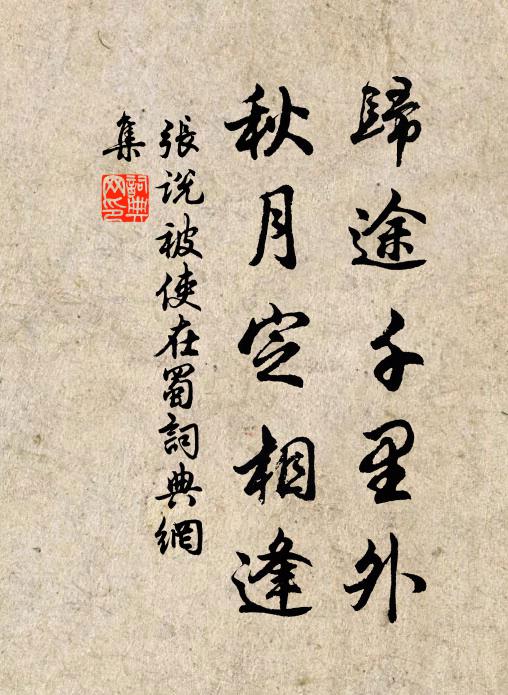 歸途千里外
秋月定相逢
張説被使在蜀詞典網
集
詞典网印